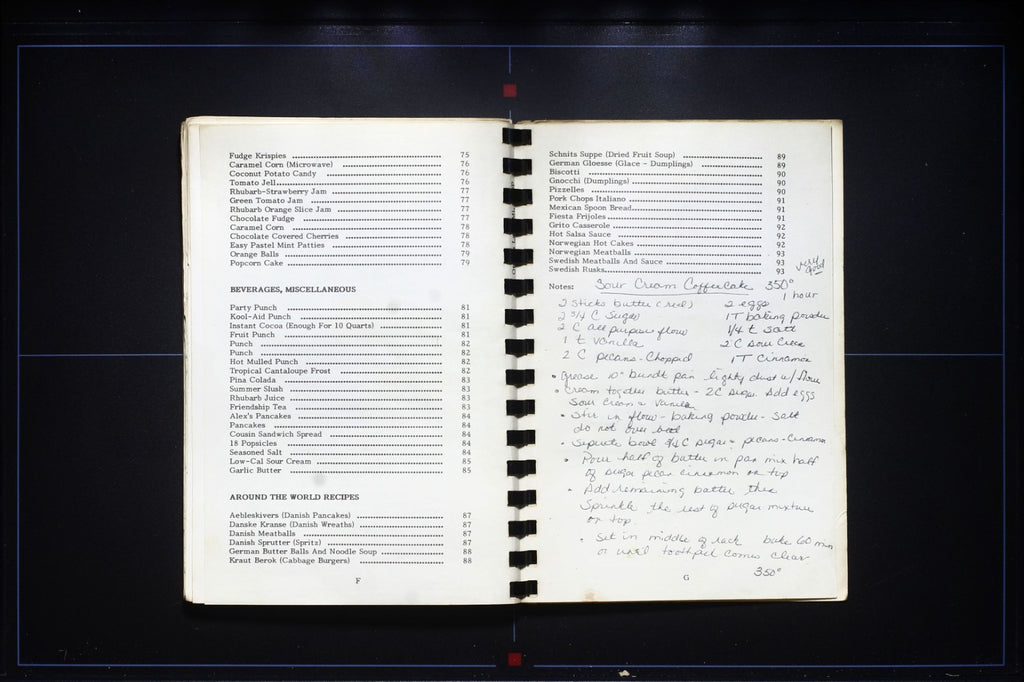 Fudge Krispies 75
Caramel Corn (Microwave) 76
Coconut Potato Candy 76
Tomato Jell 76
Rhubarb-Strawberry Jam 77
Green Tomato Jam 77
Rhubarb Orange Slice Jam 77
Chocolate Fudge 77
Caramel Corn 78
Chocolate Covered Cherries 78
Easy Pastel Mint Patties 78
Orange Balls 79
Popcorn Cake 79
BEVERAGES, MISCELLANEOUS
Party Punch 81
Kool-Aid Punch 81
Instant Cocoa (Enough For 10 Quarts) 81
Fruit Punch 81
Punch 82
Punch 82
Hot Mulled Punch 82
Tropical Cantaloupe Frost 82
Pina Colada 83
Summer Slush 83
Rhubarb Juice 83
Friendship Tea 83
Alex's Pancakes 84
Pancakes 84
Cousin Sandwich Spread 84
18 Popsicles 84
Seasoned Salt 84
Low-Cal Sour Cream 85
Garlic Butter 85
AROUND THE WORLD RECIPES
Aebleskivers (Danish Pancakes) 87
Danske Kranse (Danish Wreaths) 87
Danish Meatballs 87
Danish Sprutter (Spritz) 87
German Butter Balls And Noodle Soup 88
Kraut Berok (Cabbage Burgers) 88
F
Schnits Suppe (Dried Fruit Soup) 89
German Gloesse (Glace - Dumplings) 89
Biscotti 90
Gnocchi (Dumplings) 90
Pizzelles 90
Pork Chops Italiano 91
Mexican Spoon Bread 91
Fiesta Frijoles 91
Grito Casserole 92
Hot Salsa Sauce 92
Norwegian Hot Cakes 92
Norwegian Meatballs 92
Swedish Meatballs And Sauce 93
Swedish Rusks 93
very good
Notes: Sour Cream Coffeecake 350°
1 hour
2 sticks butter (real) 2 eggs
2 3/4 C Sugar 1T baking powder
2 C all purpose flour 1/4 t salt
1 t Vanilla 2 C sour cream
2 C pecans-Chopped 1T Cinnamon
• Grease 10" bundt pan lightly dust w/ flour
• Cream together butter - 2C sugar. Add eggs
sour cream + vanilla
• Stir in flour - baking powder - salt
do not over beat
• Seperate bowl 3/4 C sugar + pecans-Cinnamon
• Pour half of batter in pan mix half
of sugar pecan cinnamon on top
• Add remaining batter then
Sprinkle the rest of sugar mixture
on top.
• Set in middle of rack bake 60 min
or until toothpick comes clear
350°
G